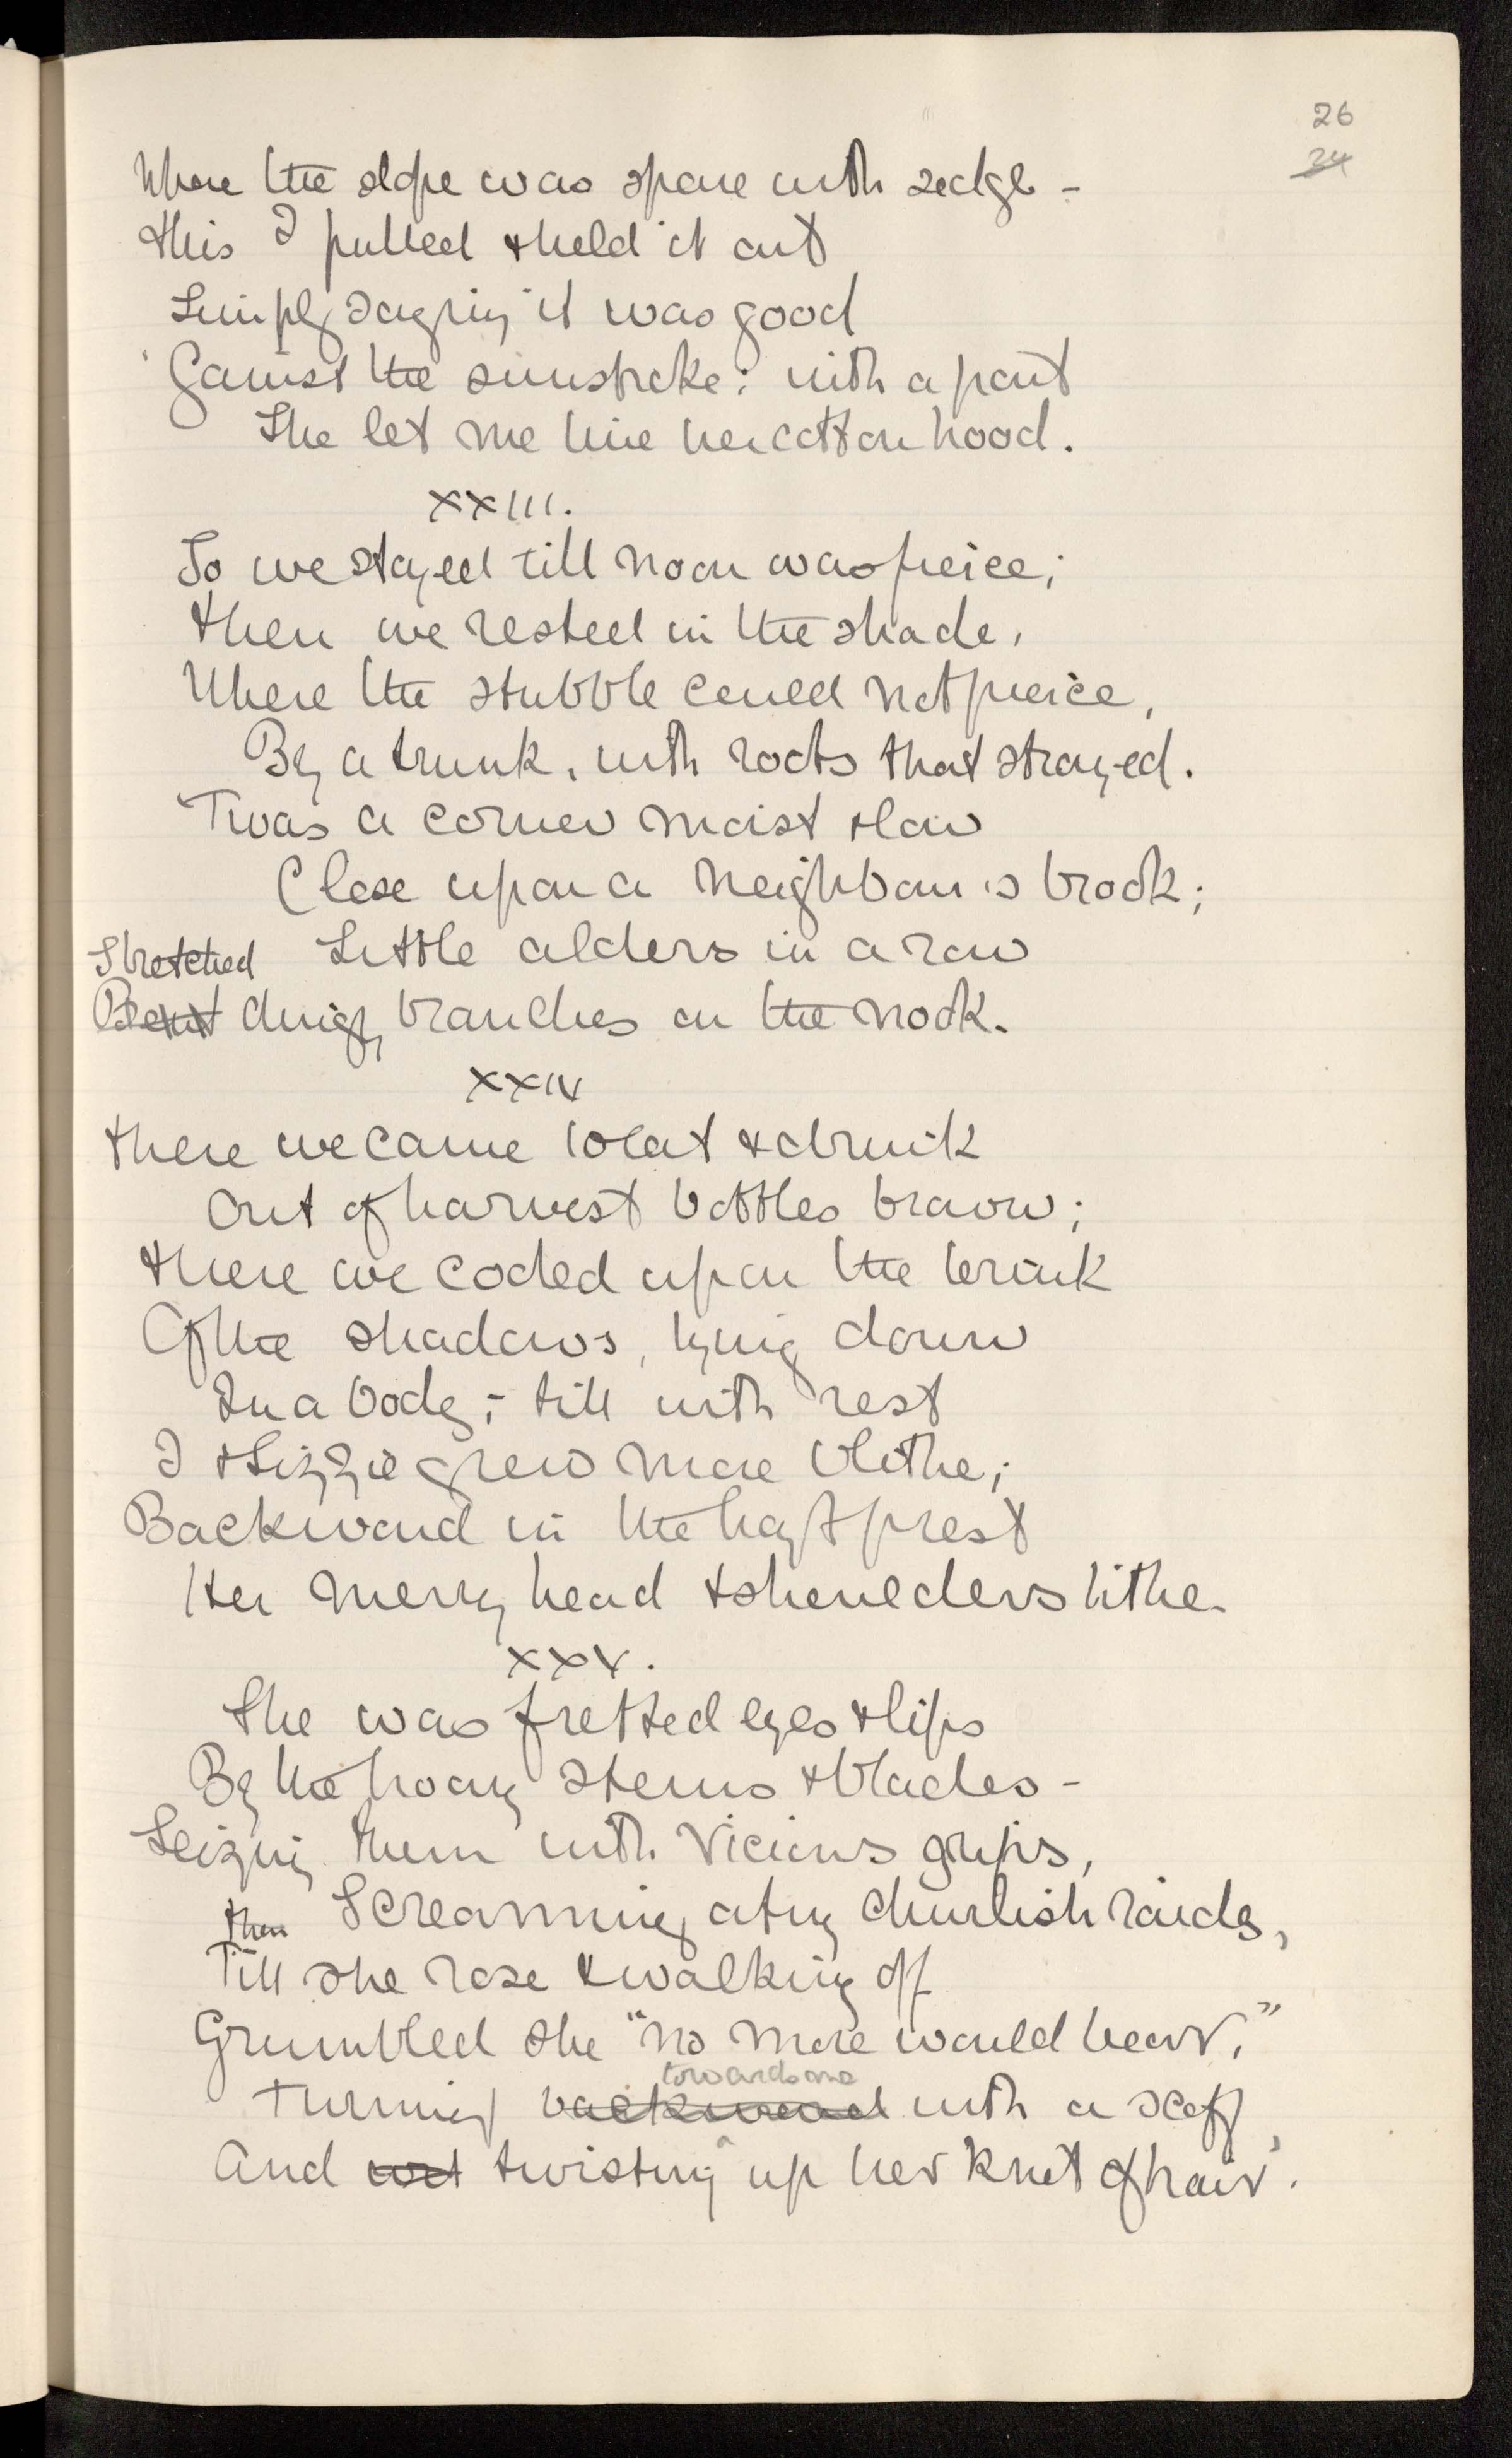 26
24
Where the slope was spare with sedge -
This I pulled & held it out
Simply saying it was good
'Gainst the sunstroke: with a pout
She let me line her cotton hood.
XXIII.
So we stayed till noon was fierce;
Then we rested in the shade,
Where the stubble could not pierce,
By a trunk, with roots that strayed.
Twas a corner moist & low
Close upon a neighbour's brook;
Little alders in a row
Stretched
Bent dingy branches on the nook.
XXIV
There we came to eat & drink
Out of harvest bottles brown;
There we cooled upon the brink
Of the shadows, lying down
In a body; - till with rest
I & Lizzie grew more blithe;
Backward in the hay I prest
Her merry head & shoulders lithe.
XXV.
She was fretted eyes & lips
By the hoary stems & blades -
Seizing them with vicious grips,
Screaming at my churlish raids,
then
Till she rose & walking off
Grumbled she "no more would bear,"
towards me
Turning backward with a scoff,
And twisting up her knot of hair.